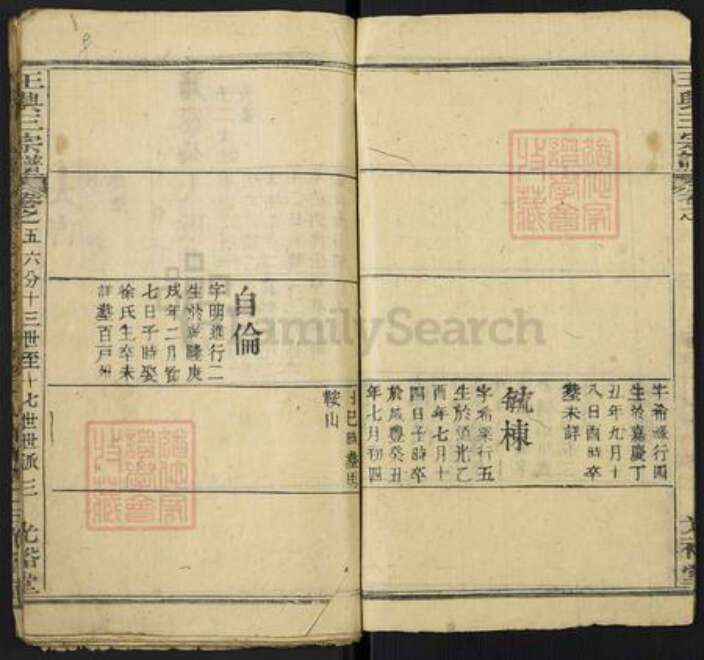 字希□行四
生於嘉慶丁
丑年九月十
八日酉時卒
墓未詳
毓棟
字希梁行五
生於道光乙
酉年七月十
四日子時卒
於咸豐癸丑
年七月初四
鞍山
自倫
字明進行二
生於乾隆庚
戌年二月初
七日子時娶
徐氏生卒未
詳墓百戶
王興三宗譜
卷之五六分十三世至十七世世派三
光裕堂
FamilySearch